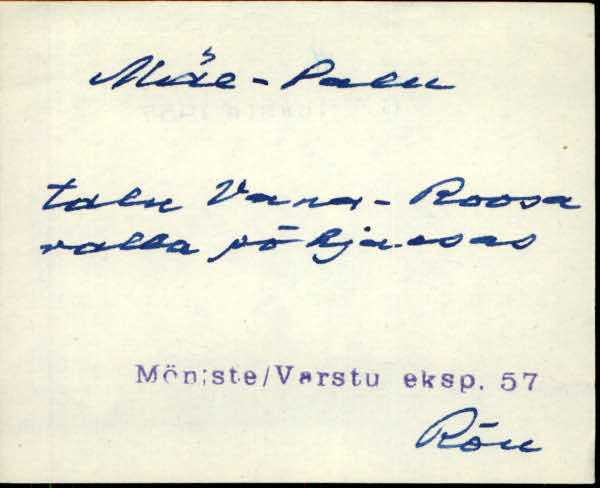 Mäe-Palu
talu Vana-Roosa
valla põhjaosas
Mõniste/Varstu eksp. 57
Rõu